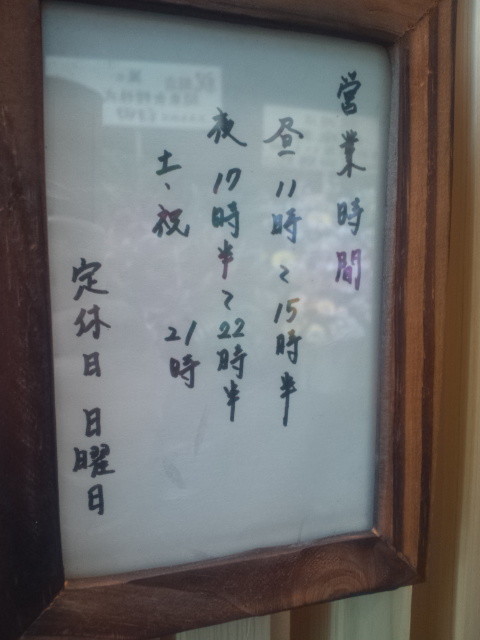 営業時間
昼 11時〜15時半
夜 17時半〜22時半
土、祝 21時
定休日 日曜日